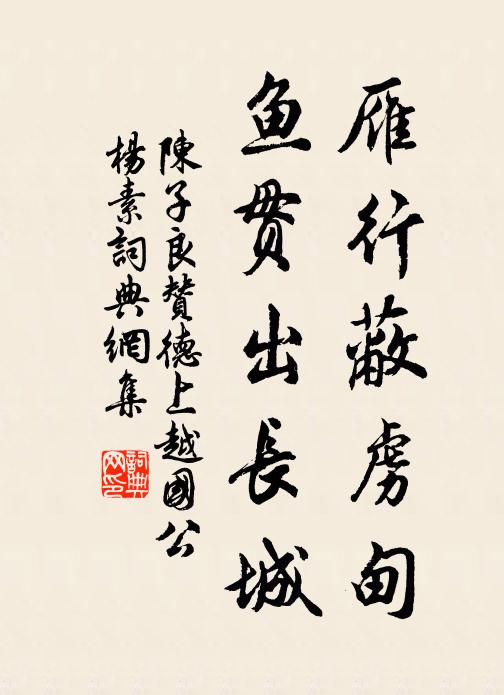 雁行蔽虜甸
魚貫出長城
陳子良贊德上越國公
楊素詞典網集
詞典网印